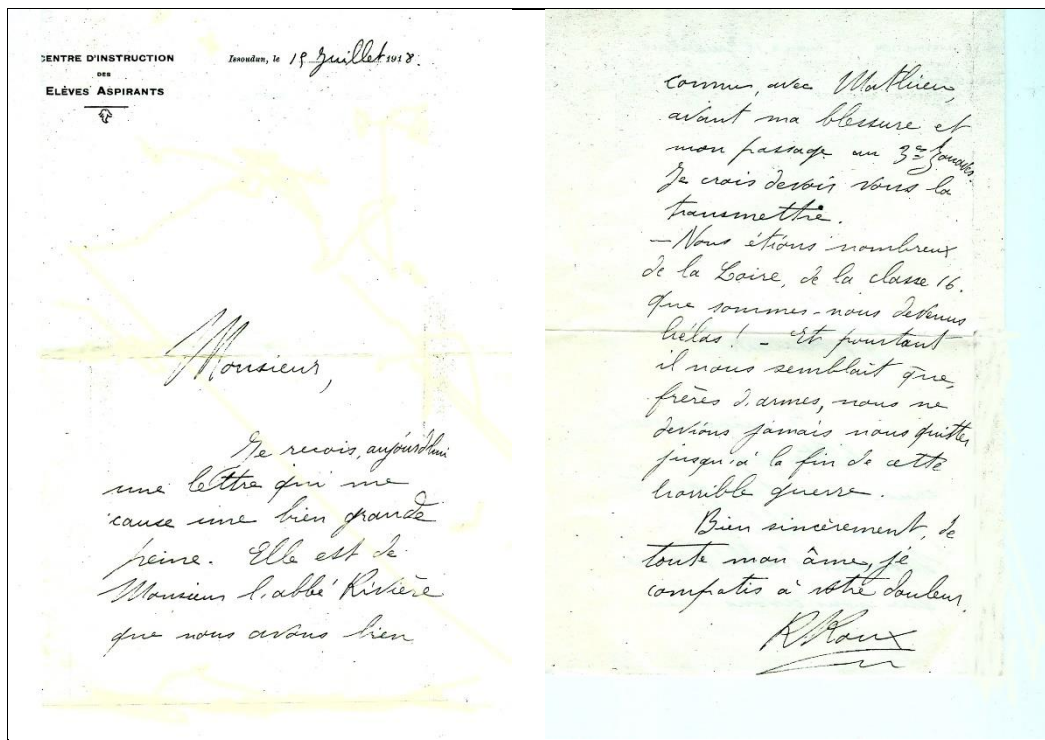 CENTRE D'INSTRUCTION
DES
ELÉVES ASPIRANTS
Issoudun, le 15 Juillet 1918.
Monsieur,
Je recois, aujourd'hui
une lettre qui me
cause une bien grande
peine. Elle est de
Monsieur l'abbé Rivière
que nous avons bien
connu, avec Mathieu,
avant ma blessure et
mon passage au 3e Zouaves.
Je crois devoir vous la
transmettre.
— Nous étions nombreux
de la Loire, de la classe 16.
que sommes-nous devenus
hélas ! – Et pourtant
il nous semblait que,
frères d'armes, nous ne
devions jamais nous quitter
jusqu'à la fin de cette
horrible guerre.
Bien sincèrement, de
toute mon âme, je
compatis à votre douleur.
R Roux